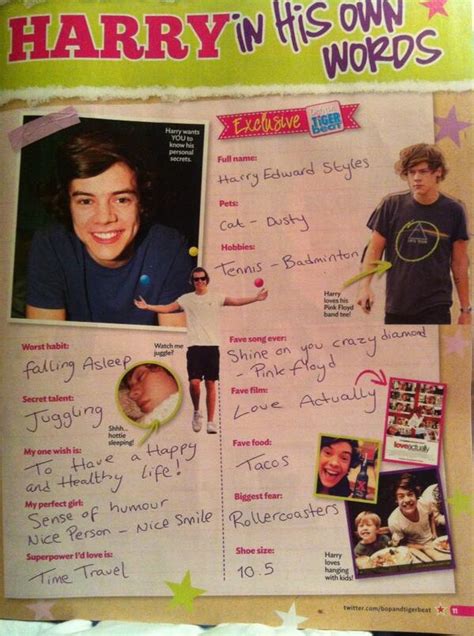 HARRY in His OWN
WORDS
Harry wants
YOU to
know his
personal
secrets.
Exclusive
TIGER
BEAT
Full name:
Harry Edward Styles
Pets:
Cat - Dusty
Hobbies:
Tennis - Badminton
Harry
loves his
Pink Floyd
band tee!
Worst habit:
falling Asleep
Watch me
juggle?
Secret talent:
Juggling
Shhh..
hottie
sleeping!
My one wish is:
To Have a Happy
and Healthy life!
My perfect girl:
Sense of humour
Nice Person - Nice Smile
Superpower I'd love is:
Time Travel
Fave song ever:
Shine on you crazy diamond
- Pink floyd
Fave film:
Love Actually
love actually
Fave food:
Tacos
Biggest fear:
Rollercoasters
Shoe size:
10.5
Harry
loves
hanging
with kids!
twitter.com/bopandtigerbeat
11